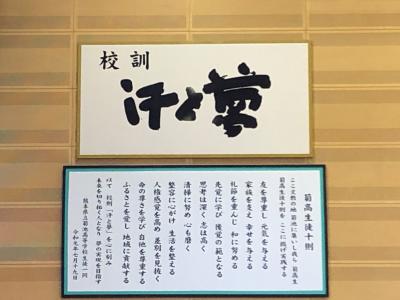 校訓
汗と夢
菊高生徒十則
ここ文教の地 菊池に集いし我ら 菊高生
菊高生徒十則を ここに掲げ実践する
友を尊重し 元気を与える
家族を支え 幸せを与える
礼節を重んじ 和に努める
先覚に学び 後覚の範となる
思考は深く 志は高く
清掃に努め 心も磨く
整容に心がけ 生活を整える
人権感覚を高め 差別を見抜く
命の尊さを学び 自他を尊重する
ふるさとを愛し 地域に貢献する
以て 校訓「汗と夢」を心に刻み
未来を切り拓く人となり 夢の実現を目指す
熊本県立菊池高等学校生徒一同
令和元年七月十九日